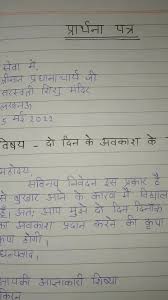 प्रार्थना पत्र
सेवा में,
श्रीमान प्रधानाचार्य जी
सरस्वती शिशु मंदिर
लखनऊ
5 मई 2022
विषय - दो दिन के अवकाश के
महोदय
सविनय निवेदन इस प्रकार है
से बुखार आने के कारण में विद्याल
है। अतः आप मुझे दो दिन दिनांक
का अवकाश प्रदान करने की कृपा
कृपा होगी।
धन्यवाद।
आपकी आज्ञाकारी शिष्या
किरन